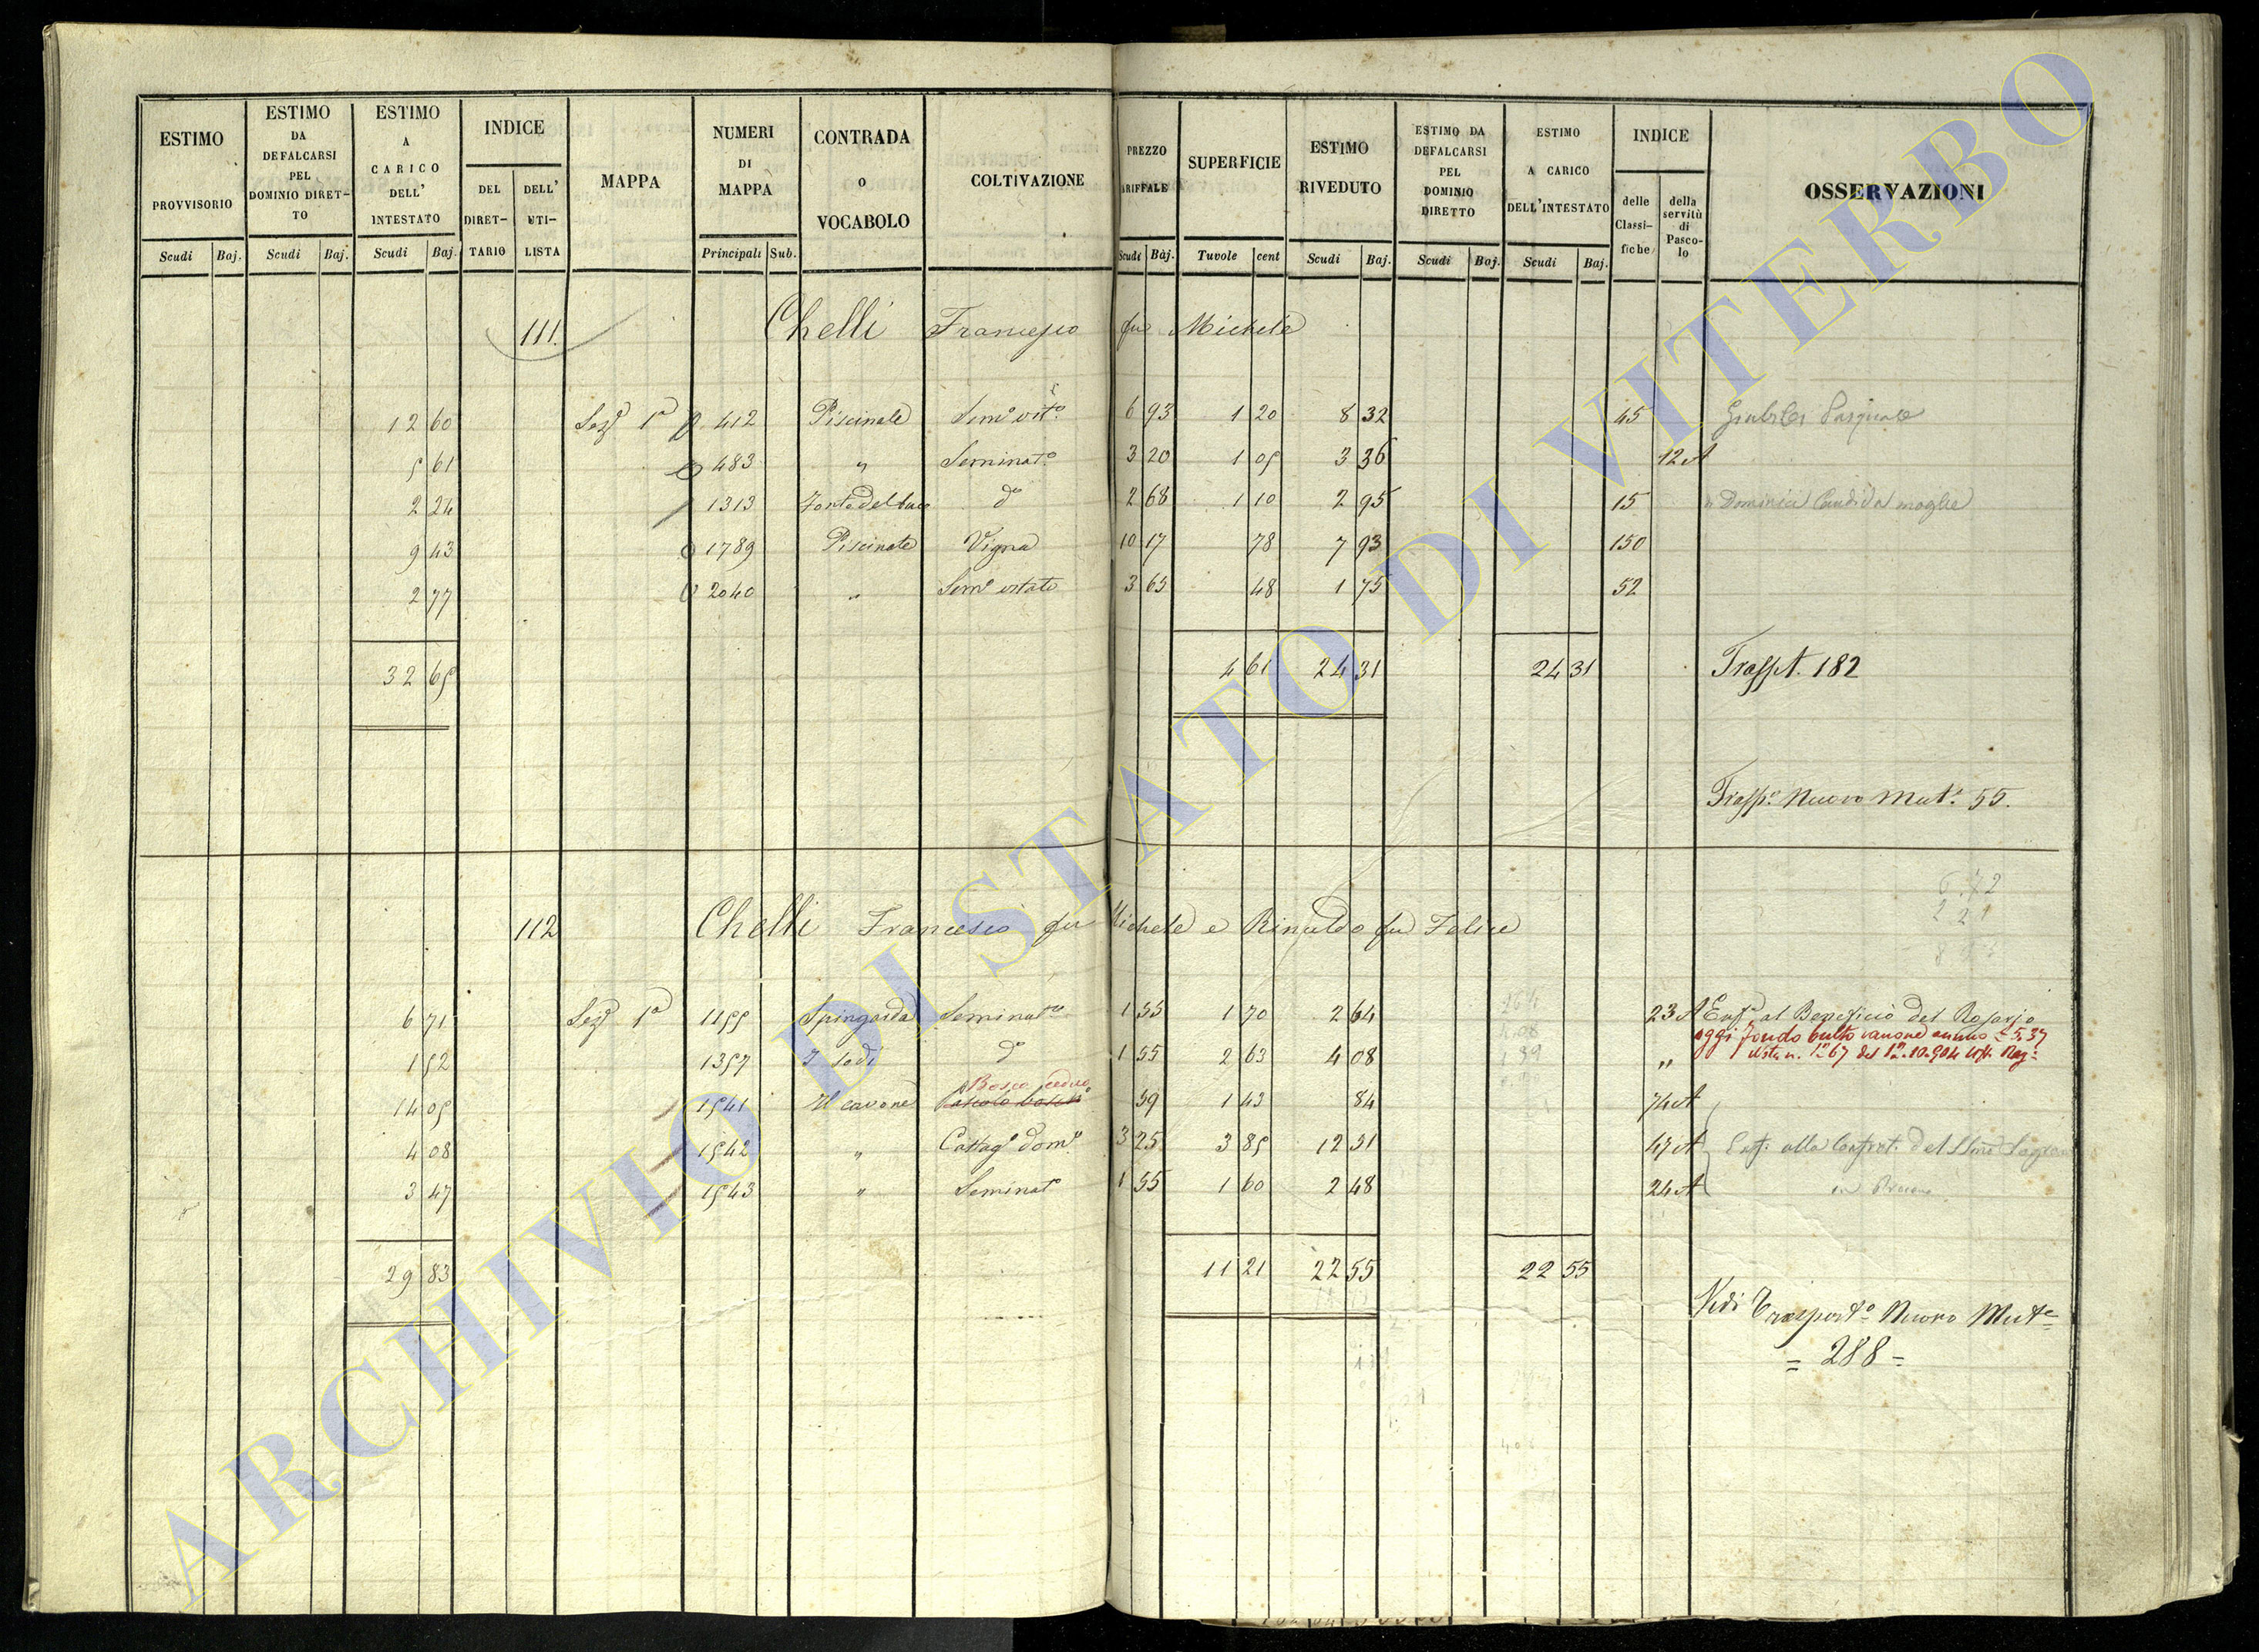 ESTIMO PROVVISORIO
ESTIMO DA DEFALCARSI PEL DOMINIO DIRETTO
ESTIMO A CARICO DELL' INTESTATO
INDICE
DEL DIRETTARIO
DELL' UTILISTA
MAPPA
NUMERI DI MAPPA
CONTRADA O VOCABOLO
COLTIVAZIONE
PREZZO ARIFFALE
SUPERFICIE
ESTIMO RIVEDUTO
ESTIMO DA DEFALCARSI PEL DOMINIO DIRETTO
ESTIMO A CARICO DELL'INTESTATO
INDICE
delle Classifiche
della servitù di Pascolo
OSSERVAZIONI
Scudi Baj. Scudi Baj. Scudi Baj. Principali Sub. Scudi Baj. Tavole cent Scudi Baj. Scudi Baj. Scudi Baj.
111. Chelli Francesco fu Michele
12 60 Sez.e 1a 412 Piscinale Sem.o vit.o 6 93 1 20 8 32 45 Pasquale
5 61 483 " Seminat.o 3 20 1 05 3 36 12 A
2 24 1313 d.o 2 68 1 10 2 95 15 Candida moglie
9 43 1789 Piscinale Vigna 10 17 78 7 93 150
2 77 2040 " Sem.o vitato 3 65 48 1 75 52
32 65 4 61 24 31 24 31 Trasp.t. 182
Trasp.o Nuovo Mut.e 55.
6.72
2 21
112 Chelli Francesco fu Michele e Rinaldo fu Felice
6 71 Sez.e 1a 1155 Spingarda Seminat.o 1 55 1 70 2 64 23 A Enf.a al Beneficio del Rosario
oggi fondo culto canone annuo = 5,37
1 52 1357 I Sodi d.o 1 55 2 63 4 08 "
Bosco ceduo
14 05 1541 Il cavone Pascolo bosc.o 59 1 43 84 74 A
4 08 1542 " Castag.o dom.o 3 25 3 85 12 51 47 A Enf. alla Confrat. del SSmo
3 47 1543 " Seminat.o 1 55 1 60 2 48 24 A
29 83 11 21 22 55 22 55
Vedi Trasport.o Nuovo Mut.e
= 288 =
ARCHIVIO DI STATO DI VITERBO